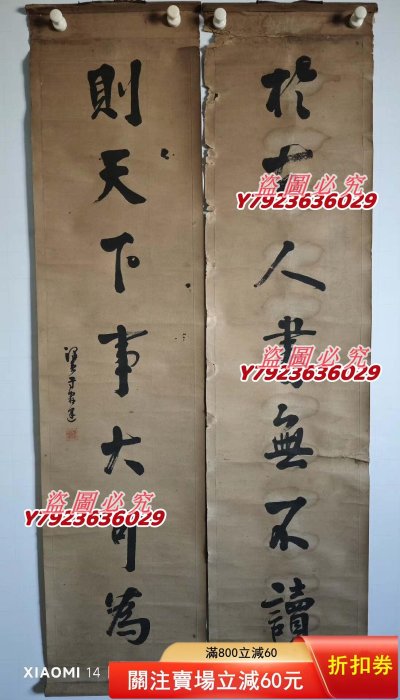 於古人書無不讀
則天下事大可為
盜圖必究
Y7923636029
盜圖必究
Y7923636029
盜圖必究
Y7923636029
XIAOMI 14
滿800立減60
關注賣場立減60元
折扣券